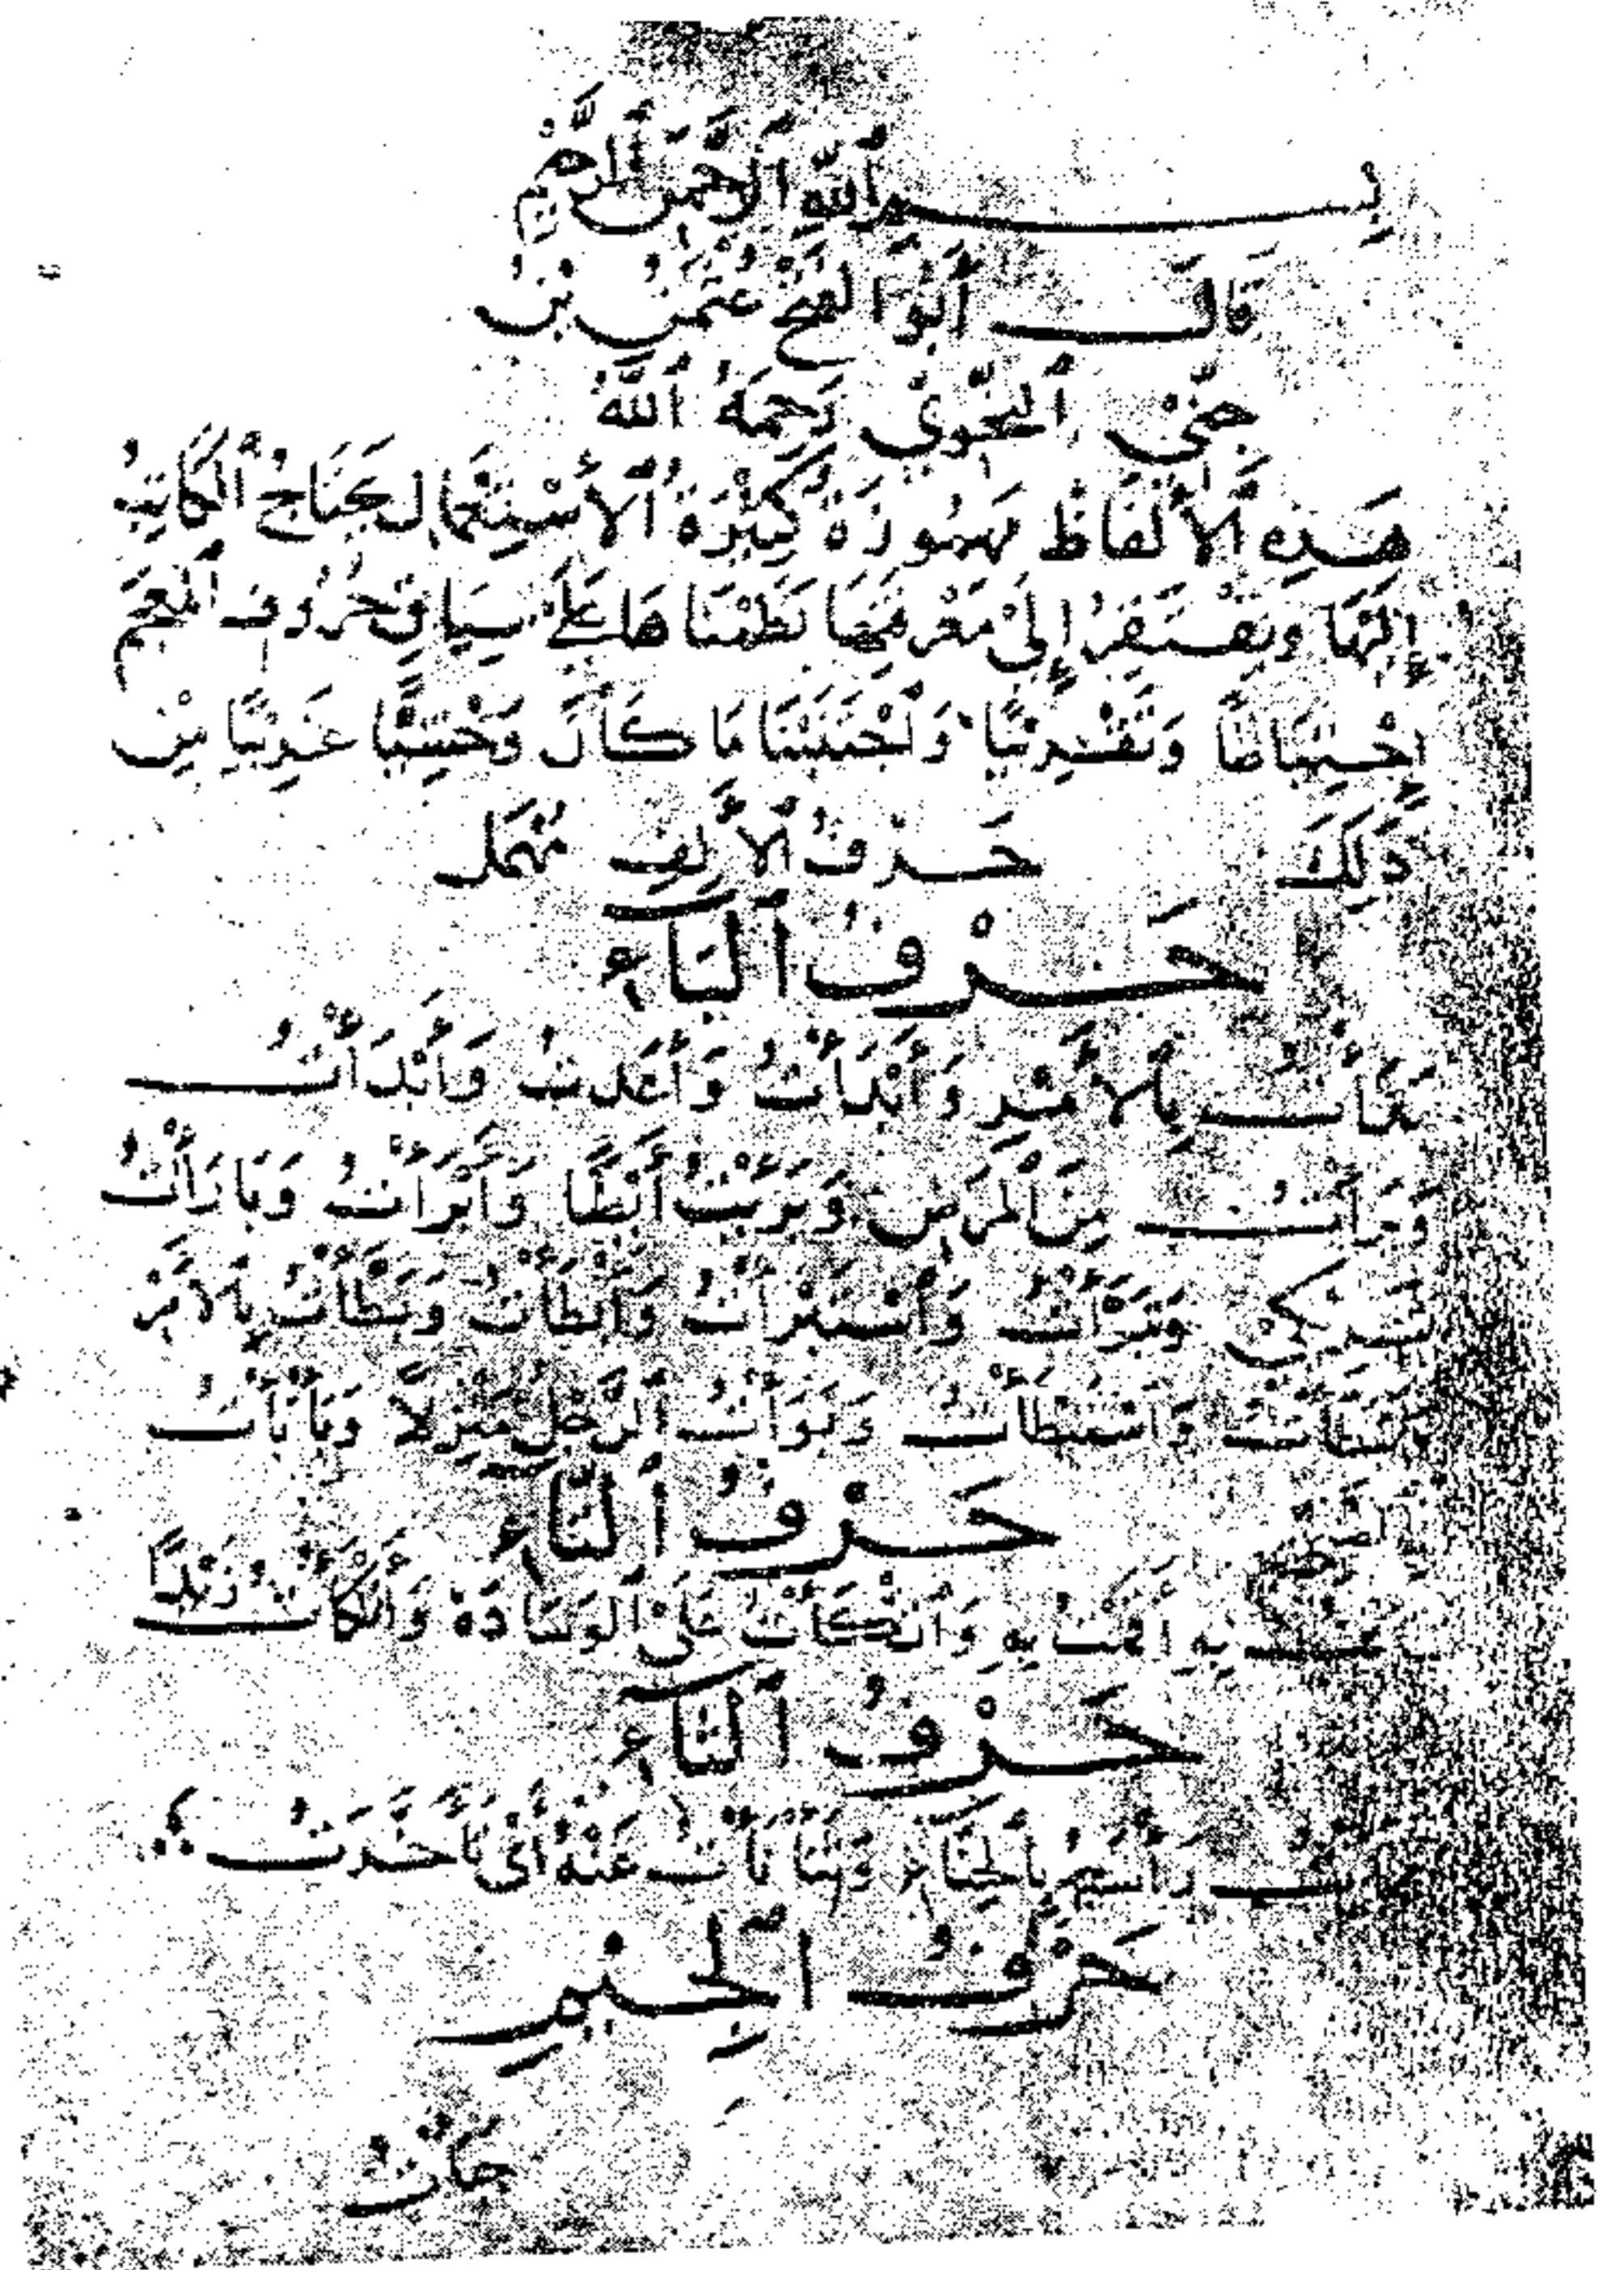 بِسْمِ ٱللَّهِ ٱلرَّحْمَنِ ٱلرَّحِيمِ
قَالَ أَبُو ٱلْفَتْحِ عُثْمَنُ بْنُ
جِنِّي ٱلنَّحْوِيُّ رَحِمَهُ ٱللَّهُ
هَذِهِ ٱلْأَلْفَاظُ مَهْمُوزَةٌ كَثِيرَةُ ٱلْٱسْتِعْمَالِ يَحْتَاجُ ٱلْكَاتِبُ
إِلَيْهَا وَيَفْتَقِرُ إِلَى مَعْرِفَتِهَا نَظَمْنَاهَا عَلَى سِيَاقِ حُرُوفِ ٱلْمُعْجَمِ
إِحْتِيَاطًا وَتَقْرِيبًا وَٱجْتَنَبْنَا مَا كَانَ وَحْشِيًّا غَرِيبًا مِنْ
ذَلِكَ حَرْفُ ٱلْأَلِفِ مُهْمَلٌ
حَرْفُ ٱلْبَآءِ
بَدَأْتُ بِٱلْأَمْرِ وَٱبْتَدَأْتُ وَأَبْدَأْتُ
مِنَ ٱلْمَرَضِ وَبَرِئْتُ أَيْضًا وَأَبْرَأْتُ وَبَارَأْتُ
شَرِيكِي وَتَبَرَّأْتُ وَٱسْتَبْرَأْتُ وَأَبْطَأْتُ وَبَطَّأْتُ بِٱلْأَمْرِ
وَٱسْتَبْطَأْتُ وَبَوَّأْتُ ٱلرَّجُلَ مَنْزِلًا وَبَأْبَأْتُ
حَرْفُ ٱلتَّآءِ
بِهِ أَقَمْتُ بِهِ وَٱتَّكَأْتُ عَلَى ٱلْوِسَادَةِ وَأَتْكَأْتُ زَيْدًا
حَرْفُ ٱلثَّآءِ
بِٱلْحِنَّآءِ وَتَثَأْثَأْتُ عَنْهُ أَيْ تَأَخَّرْتُ
حَرْفُ ٱلْجِيمِ
جِئْتُ